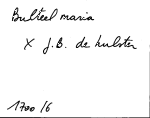 Bulteel maria
X J.B. de hulster
1700/6